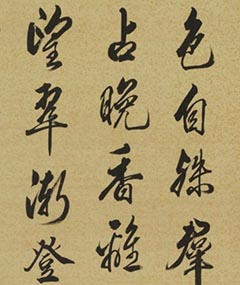 色自殊羣
占晚香
望翠漸登